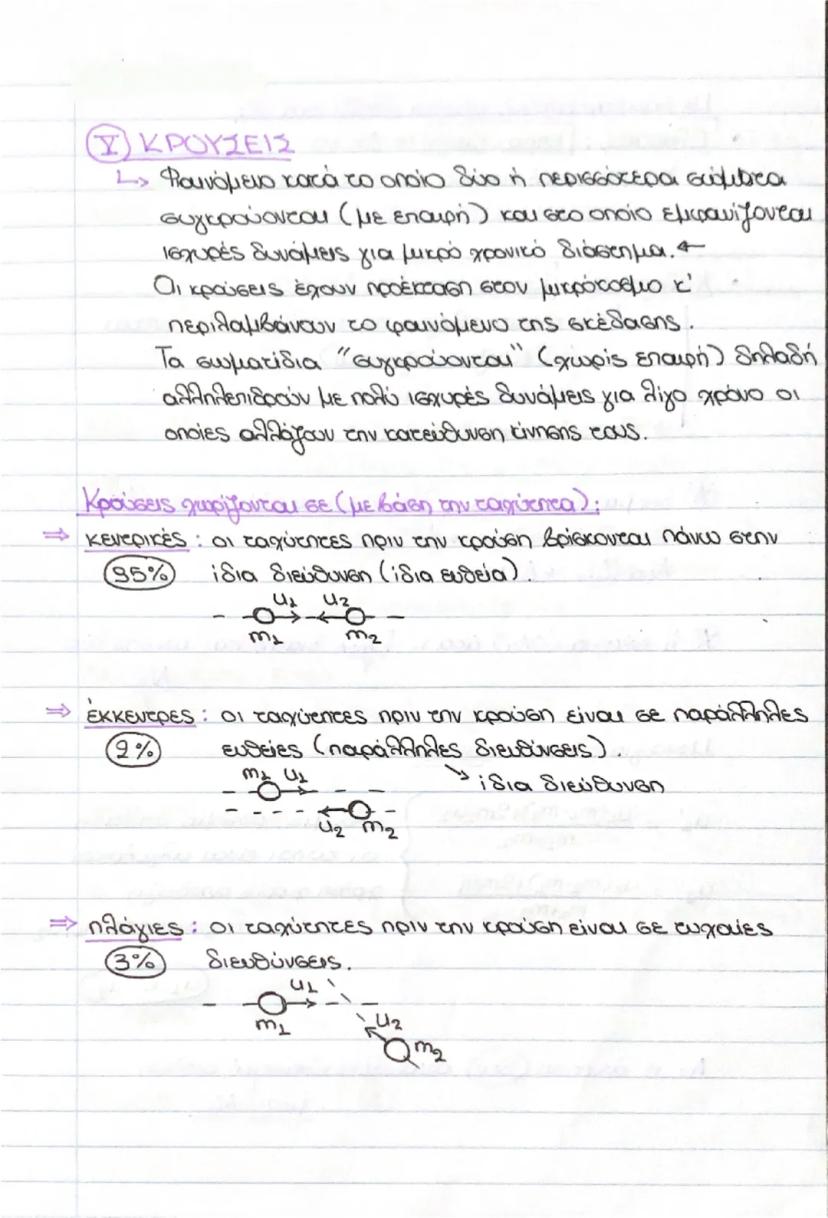 Ⓥ ΚΡΟΥΣΕΙΣ
↳ Φαινόμενο κατά το οποίο δύο ή περισσότερα σώματα
συγκρούονται (με επαφή) και στο οποίο εμφανίζονται
ισχυρές δυνάμεις για μικρό χρονικό διάστημα. ←
Οι κρούσεις έχουν προέκταση στον μικρόκοσμο κ'
περιλαμβάνουν το φαινόμενο της σκέδασης.
Τα σωματίδια "συγκρούονται" (χωρίς επαφή) δηλαδή
αλληλεπιδρούν με πολύ ισχυρές δυνάμεις για λίγο χρόνο οι
οποίες αλλάζουν την κατεύθυνση κίνησης τους.
Κρούσεις χωρίζονται σε (με βάση την ταχύτητα):
⇒ κεντρικές : οι ταχύτητες πριν την κρούση βρίσκονται πάνω στην
95% ίδια διεύθυνση (ίδια ευθεία).
u1 u2
m1 m2
⇒ έκκεντρες : οι ταχύτητες πριν την κρούση είναι σε παράλληλες
2% ευθείες (παράλληλες διευθύνσεις).
↘ ίδια διεύθυνση
m1 u1
u2 m2
⇒ πλάγιες : οι ταχύτητες πριν την κρούση είναι σε τυχαίες
3% διευθύνσεις.
u1
m1
u2
m2